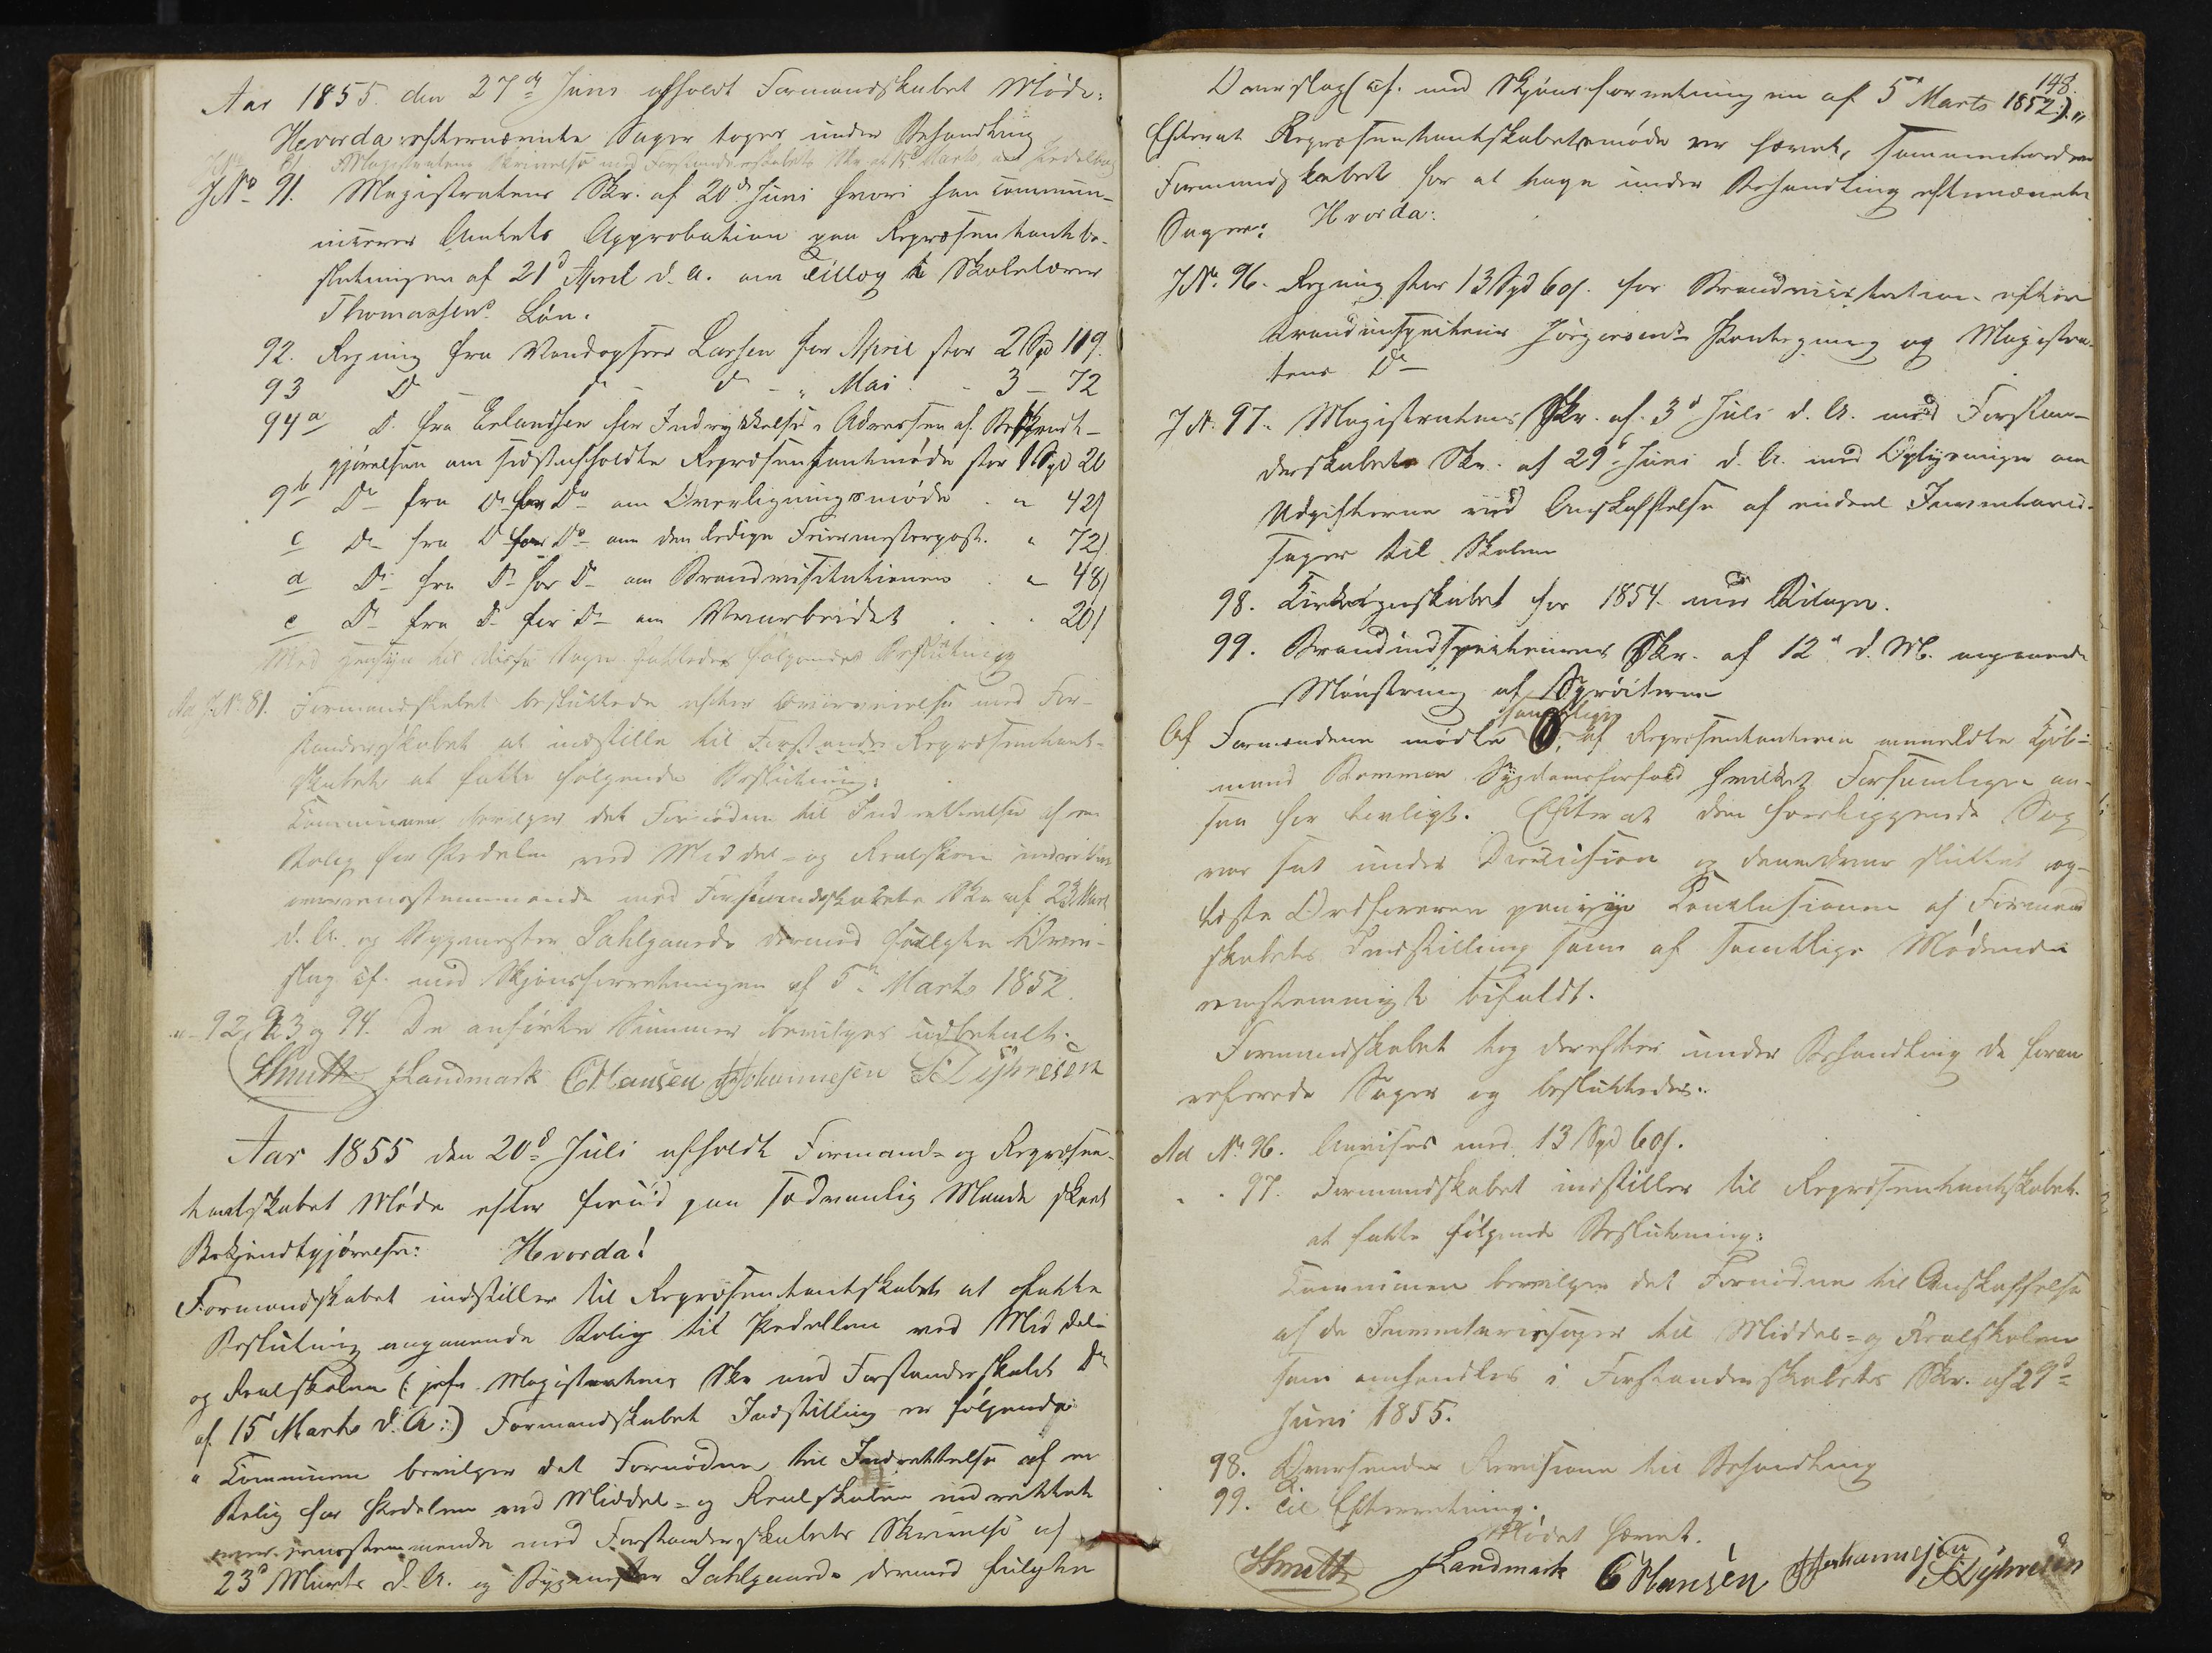 Aar 1855 den 27de Juni afholdt Formandskabet Møde:
Hvorda efternævnte Sager toges under Behandling
JNo 81. Magistratens Skrivelse med Forstanderskabets Skr. af 15 Marts, om Pedelbolig
JNo 91. Magistratens Skr. af 20d Juni hvori han commun-
nicerer Amtets Approbation paa Repræsentantbe-
slutningen af 21d April d. A. om Tillæg i Skolelærer
Thomassens Løn.
92. Regning fra Larsen for April stor 2 Spd 119.
93 Do - Do - Do - " Mai - 3 - 72
94 a Do fra Erlandsen for Indrykkelse i Adressen af Bekjendt-
gjørelsen om sidstafholdte Repræsentantmøde stor 1 Spd 20
9 b Do fra Do for Do om Overligningsmøde . " 42 s
c Do fra Do for Do om den ledige Feiermesterpost. " 72 s
d Do fra Do for Do om Brandvisitationen . " 48 s
e Do fra Do for Do om Veiarbeidet . . . 20 s
Med Hensyn til disse Sager fattedes følgende Beslutning
Ad JNo 81. Formandskabet besluttede efter Overeenskomst med For-
standerskabet at indstille til Repræsentant-
skabet at fatte følgende Beslutning:
Communen bevilger det Fornødne til Indrettelse af en
Bolig for Pedelen ved Middel- og Realskolen indrettet
overensstemmende med Forstanderskabets Skr af 23 Marts
d. A. og Bygmester Dahlgaards dermed fulgte Over-
slag cf. med Skjønsforretningen af 5te Marts 1852.
" - 92, 93 og 94. De anførte Summer bevilges udbetalt.
Smith Landmark C Hansen J Johannesen F. Dyhresen
Aar 1855 den 20d Juli afholdt Formand- og Repræsen-
tantskabet Møde efter forud paa sædvanlig Maade skeet
Bekjendtgjørelse: Hvorda!
Formandskabet indstiller til Repræsentantskabet at fatte
Beslutning angaaende Bolig til Pedellen ved Middel-
og Realskolen (: jvfr. Magistratens Skr med Forstanderskabets Do
af 15 Marts d. A :) Formandskabets Indstilling er følgende:
" Communen bevilger det Fornødne til Indrettelse af en
Bolig for Pedelen ved Middel- og Realskolen indrettet
overensstemmende med Forstanderskabets Skrivelse af
23d Marts d. A. og Bygmester Dahlgaards dermed fulgte
148.
Overslag (cf. med Skjønsforretningen af 5 Marts 1852.)"
Efterat Repræsentantskabetsmøde var hævet, sammentraadte
Formandskabet for at tage under Behandling efternævnte
Sager: Hvorda:
JNo. 96. Regning stor 13 Spd 60 s. for Brandvisitation efter
Brandinspecteur Jørgensens Paategning og Magistra-
tens Do
JN. 97. Magistratens Skr. af 3d Juli d. A. med Forstan-
derskabets Skr. af 29d Juni d. A. med Oplysninger om
Udgifterne ved Anskaffelse af endeel Inventarie-
sager til Skolen
98. Kirkeregnskabet for 1854 med Bilager.
99. Brandinspecteurens Skr. af 12d d. M. angaaende
Mønstring af Sprøiterne
Af Formændene mødte samtlige, af Repræsentanterne anmeldte Kjøb-
mand Sygdomsforfald hvilket Forsamlingen an-
saa for lovligt. Efterat den foreliggende Sag
var sat under Discussion og denne derpaa sluttet op-
læste Ordføreren paany Conclusionen af Formand
skabets Indstilling som af samtlige Mødende
eenstemmigt bifaldt.
Formandskabet tog derefter under Behandling de foran
refererede Sager og besluttedes:.
Ad No 96. Anvises med 13 Spd 60 s.
" . 97. Formandskabet indstiller til Repræsentantskabet
at fatte følgende Beslutning:
Communen bevilger det Fornødne til Anskaffelse
af de Inventariesager til Middel- og Realskolen
som omhandles i Forstanderskabets Skr. af 29d
Juni 1855.
98. Oversendes Revisionen til Behandling
99. Til Efterretning.
Mødet hævet.
Smith Landmark C Hansen J Johannesen F. Dyhresen